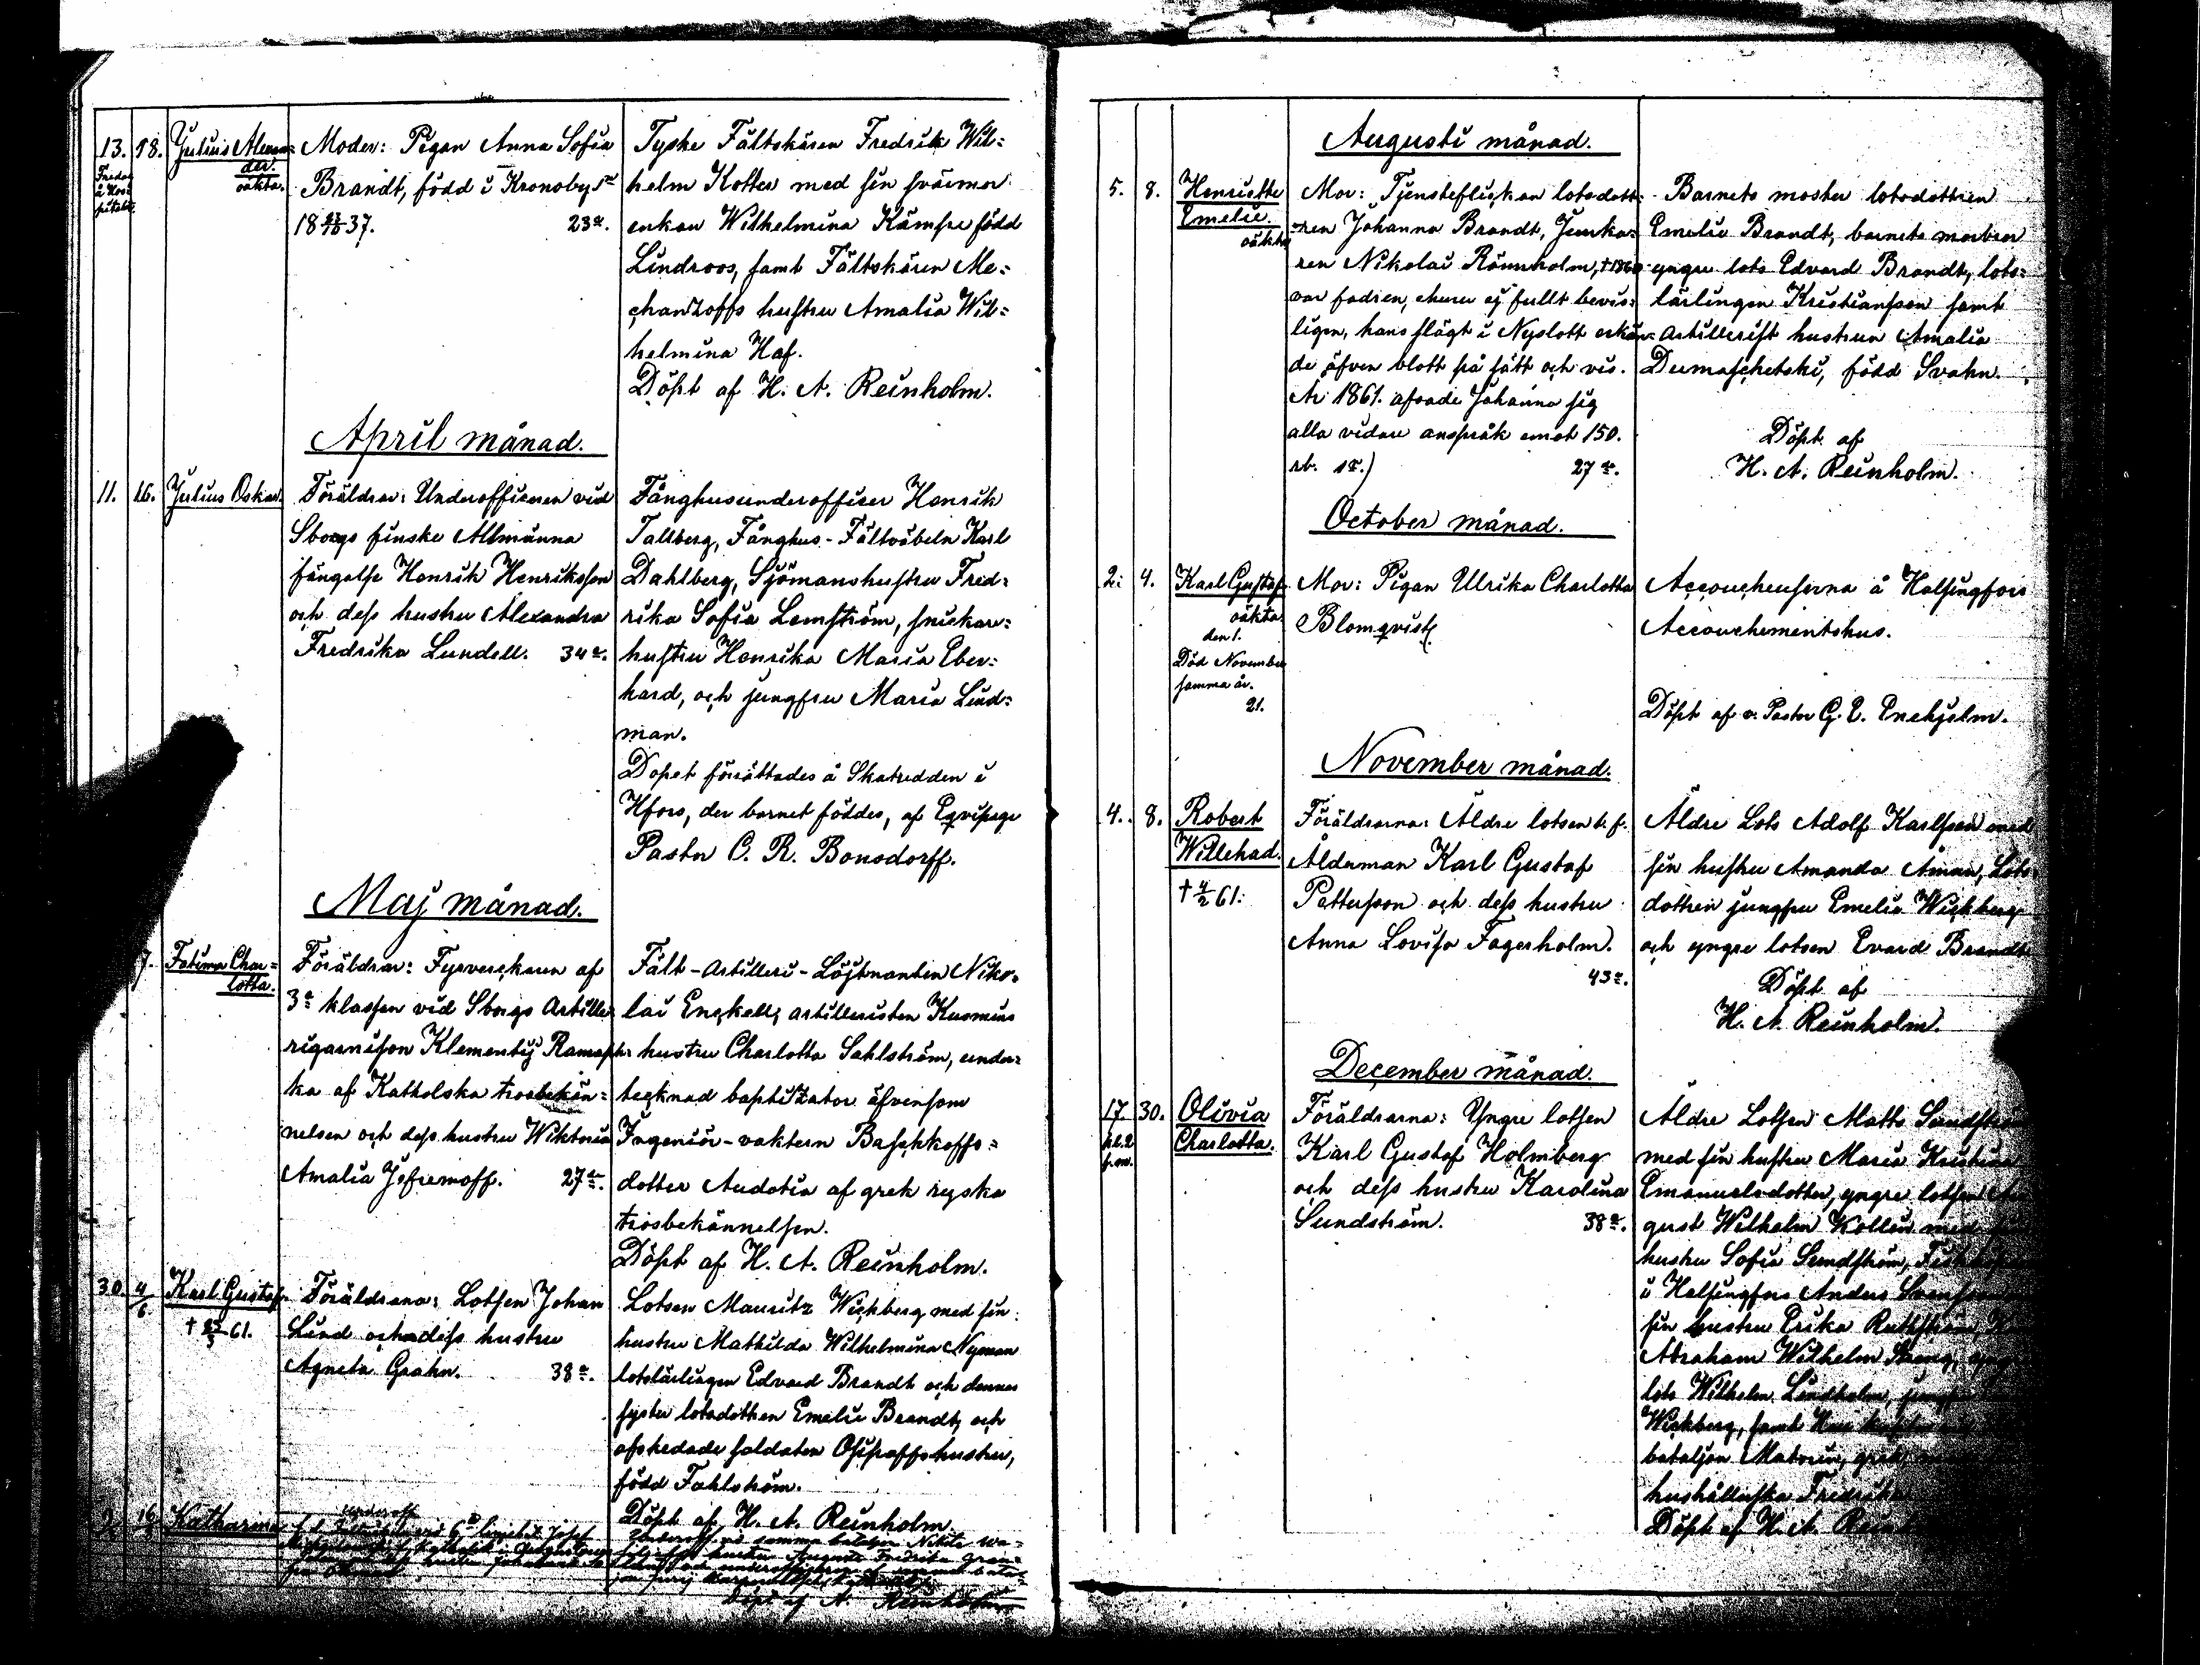 13. 18. Julius Alexan=
der.
oäkta.
Fredag
å Hos=
pitalet
Moder: Pigan Anna Sofia
Brandt, född i Kronoby
18 37. 23 år.
Tyske Fältskären Fredrik Wil=
helm Kotter med sin svärmor
enkan Wilhelmina Kämpe född
Lindroos, samt Fältskären Me=
chanzoffs hustru Amalia Wil=
helmina Haf.
Döpt af H. A. Reinholm.
April månad.
11. 16. Julius Oskar.
Föräldrar: Underofficeren vid
Sborgs finska Allmänna
fängelse Henrik Henriksson
och dess hustru Alexandra
Fredrika Lundell. 34 år.
Fånghusunderofficer Henrik
Tallberg, Fånghus-Fältväbeln Karl
Dahlberg, Sjömanshustru Fred=
rika Sofia Lemström, snickare=
hustru Henrika Maria Eber=
hard, och jungfru Maria Lind=
man.
Dopet förrättades å Skatudden i
Hfors, der barnet föddes, af Eqvipage
Pastor C. R. Bonsdorff.
Maj månad.
7. Fatima Char=
lotta.
Föräldrar: Fyrverkaren af
3e klassen vid Sborgs Artille=
rigarnison Klementij
ka af Katholska trosbekän=
nelsen och dess hustru Wiktoria
Amalia Jefremoff. 27 år.
Fält-Artilleri-Löjtnanten Niko=
lai Enckell, artilleristen Kusmins
hustru Charlotta Sahlström, under=
tecknad baptizator äfvensom
Ingeniör-vaktern Baschkoffs=
dotter Audotia af grek ryska
trosbekännelsen.
Döpt af H. A. Reinholm.
30. 4/6 Karl Gustaf.
† 61.
Föräldrarna: Lotsen Johan
Lind och dess hustru
Agneta Grahn. 38 år.
Lotsen Mauritz Wickberg med sin
hustru Mathilda Wilhelmina Nyman
lotslärlingen Edvard Brandt och dennes
syster lotsdottren Emelie Brandt, och
afskedade soldaten Osipoffs hustru,
född Fahlström.
Döpt af H. A. Reinholm.
2. 16 Katharina
Underoff. vid samma bataljon Nikita
hustru Augusta Fredrika
Döpt af A. Reinholm
Augusti månad.
5. 8. Henriette
Emelie.
oäkta
Mor: Tjensteflickan lotsdott=
ren Johanna Brandt, Junka=
ren Nikolai Rönnholm, † 1860
var fadren, ehuru ej fullt bevis=
ligen, hans slägt i Nyslott erkän=
de äfven blott på sätt och vis.
År 1861. afsade Johanna sig
alla vidare anspråk emot 150.
rb. sr.) 27 år.
Barnets moster lotsdottren
Emelie Brandt, barnets morbror
yngre lots Edvard Brandt, lots=
lärlingen Kristiansson samt
Artillerist hustrun Amalia
Dumaschetski, född Svahn.
Döpt af
H. A. Reinholm.
October månad.
2. 4. Karl Gustaf
oäkta
den 1.
Död November
samma år.
21.
Mor: Pigan Ulrika Charlotta
Blomqvist.
Accoucheuserna å Helsingfors
Accouchementshus.
Döpt af v. Pastor G. E. Enehjelm.
November månad.
4. 8. Robert
Willehad.
† 4/2 61.
Föräldrarna: Äldre lotsen t. f.
Ålderman Karl Gustaf
Pettersson och dess hustru
Anna Lovisa Fagerholm.
43 år.
Äldre Lots Adolf Karlsson med
sin hustru Amanda Åman, Lots=
dottren jungfru Emelie Wickberg
och yngre lotsen Evard Brandt
Döpt af
H. A. Reinholm.
December månad.
17. 30. Olivia
Charlotta.
kl. 2
f. m.
Föräldrarna: Yngre lotsen
Karl Gustaf Holmberg
och dess hustru Karolina
Sundström. 38 år.
Äldre Lotsen Matts Sundström
med sin hustru Maria Kristina
Emanuelsdotter, yngre lotsen Au
gust Wilhelm Kollin med sin
hustru Sofia Sundström,
i Helsingfors Anders Svensson
sin hustru Erika
Abraham Wilhelm
lots Wilhelm Lindholm, jungfru
Wickberg, samt
bataljon
hushållerska Fredrika
Döpt af H. A. Rein